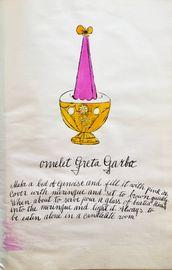 omelet Greta Garbo
Make a bed of Genoise and fill it with
Cover with meringue and set to brown quickly
When about to serve pour a glass of heated
into the meringue and light it. Always to
be eaten alone in a candlelit room